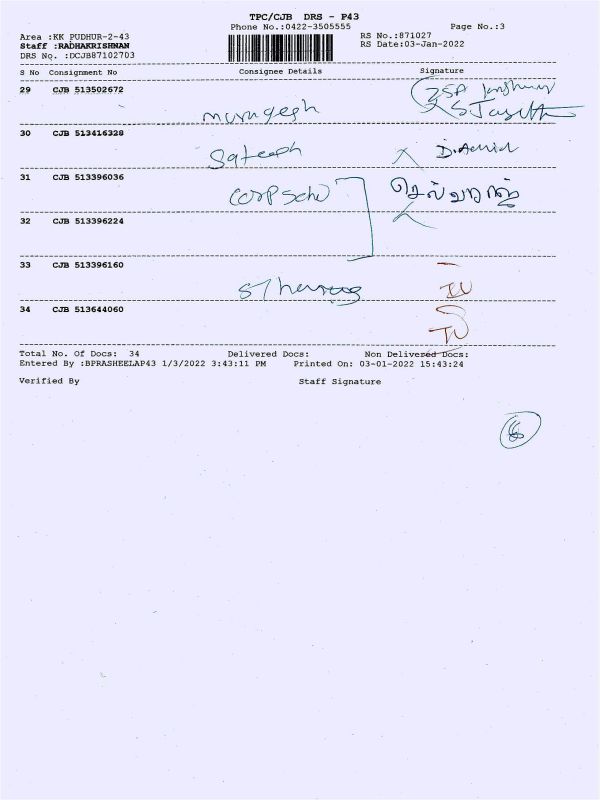 TPC/CJB DRS - P43
Phone No.:0422-3505555 Page No.:3
Area :KK PUDHUR-2-43 RS No.:871027
Staff :RADHAKRISHNAN RS Date:03-Jan-2022
DRS No. :DCJB87102703
S No Consignment No Consignee Details Signature
29 CJB 513502672
murugesh
30 CJB 513416328
Sateesh
31 CJB 513396036
செல்வராஜ்
32 CJB 513396224
33 CJB 513396160
34 CJB 513644060
Total No. Of Docs: 34 Delivered Docs: Non Delivered Docs:
Entered By :BPRASHEELAP43 1/3/2022 3:43:11 PM Printed On: 03-01-2022 15:43:24
Verified By Staff Signature